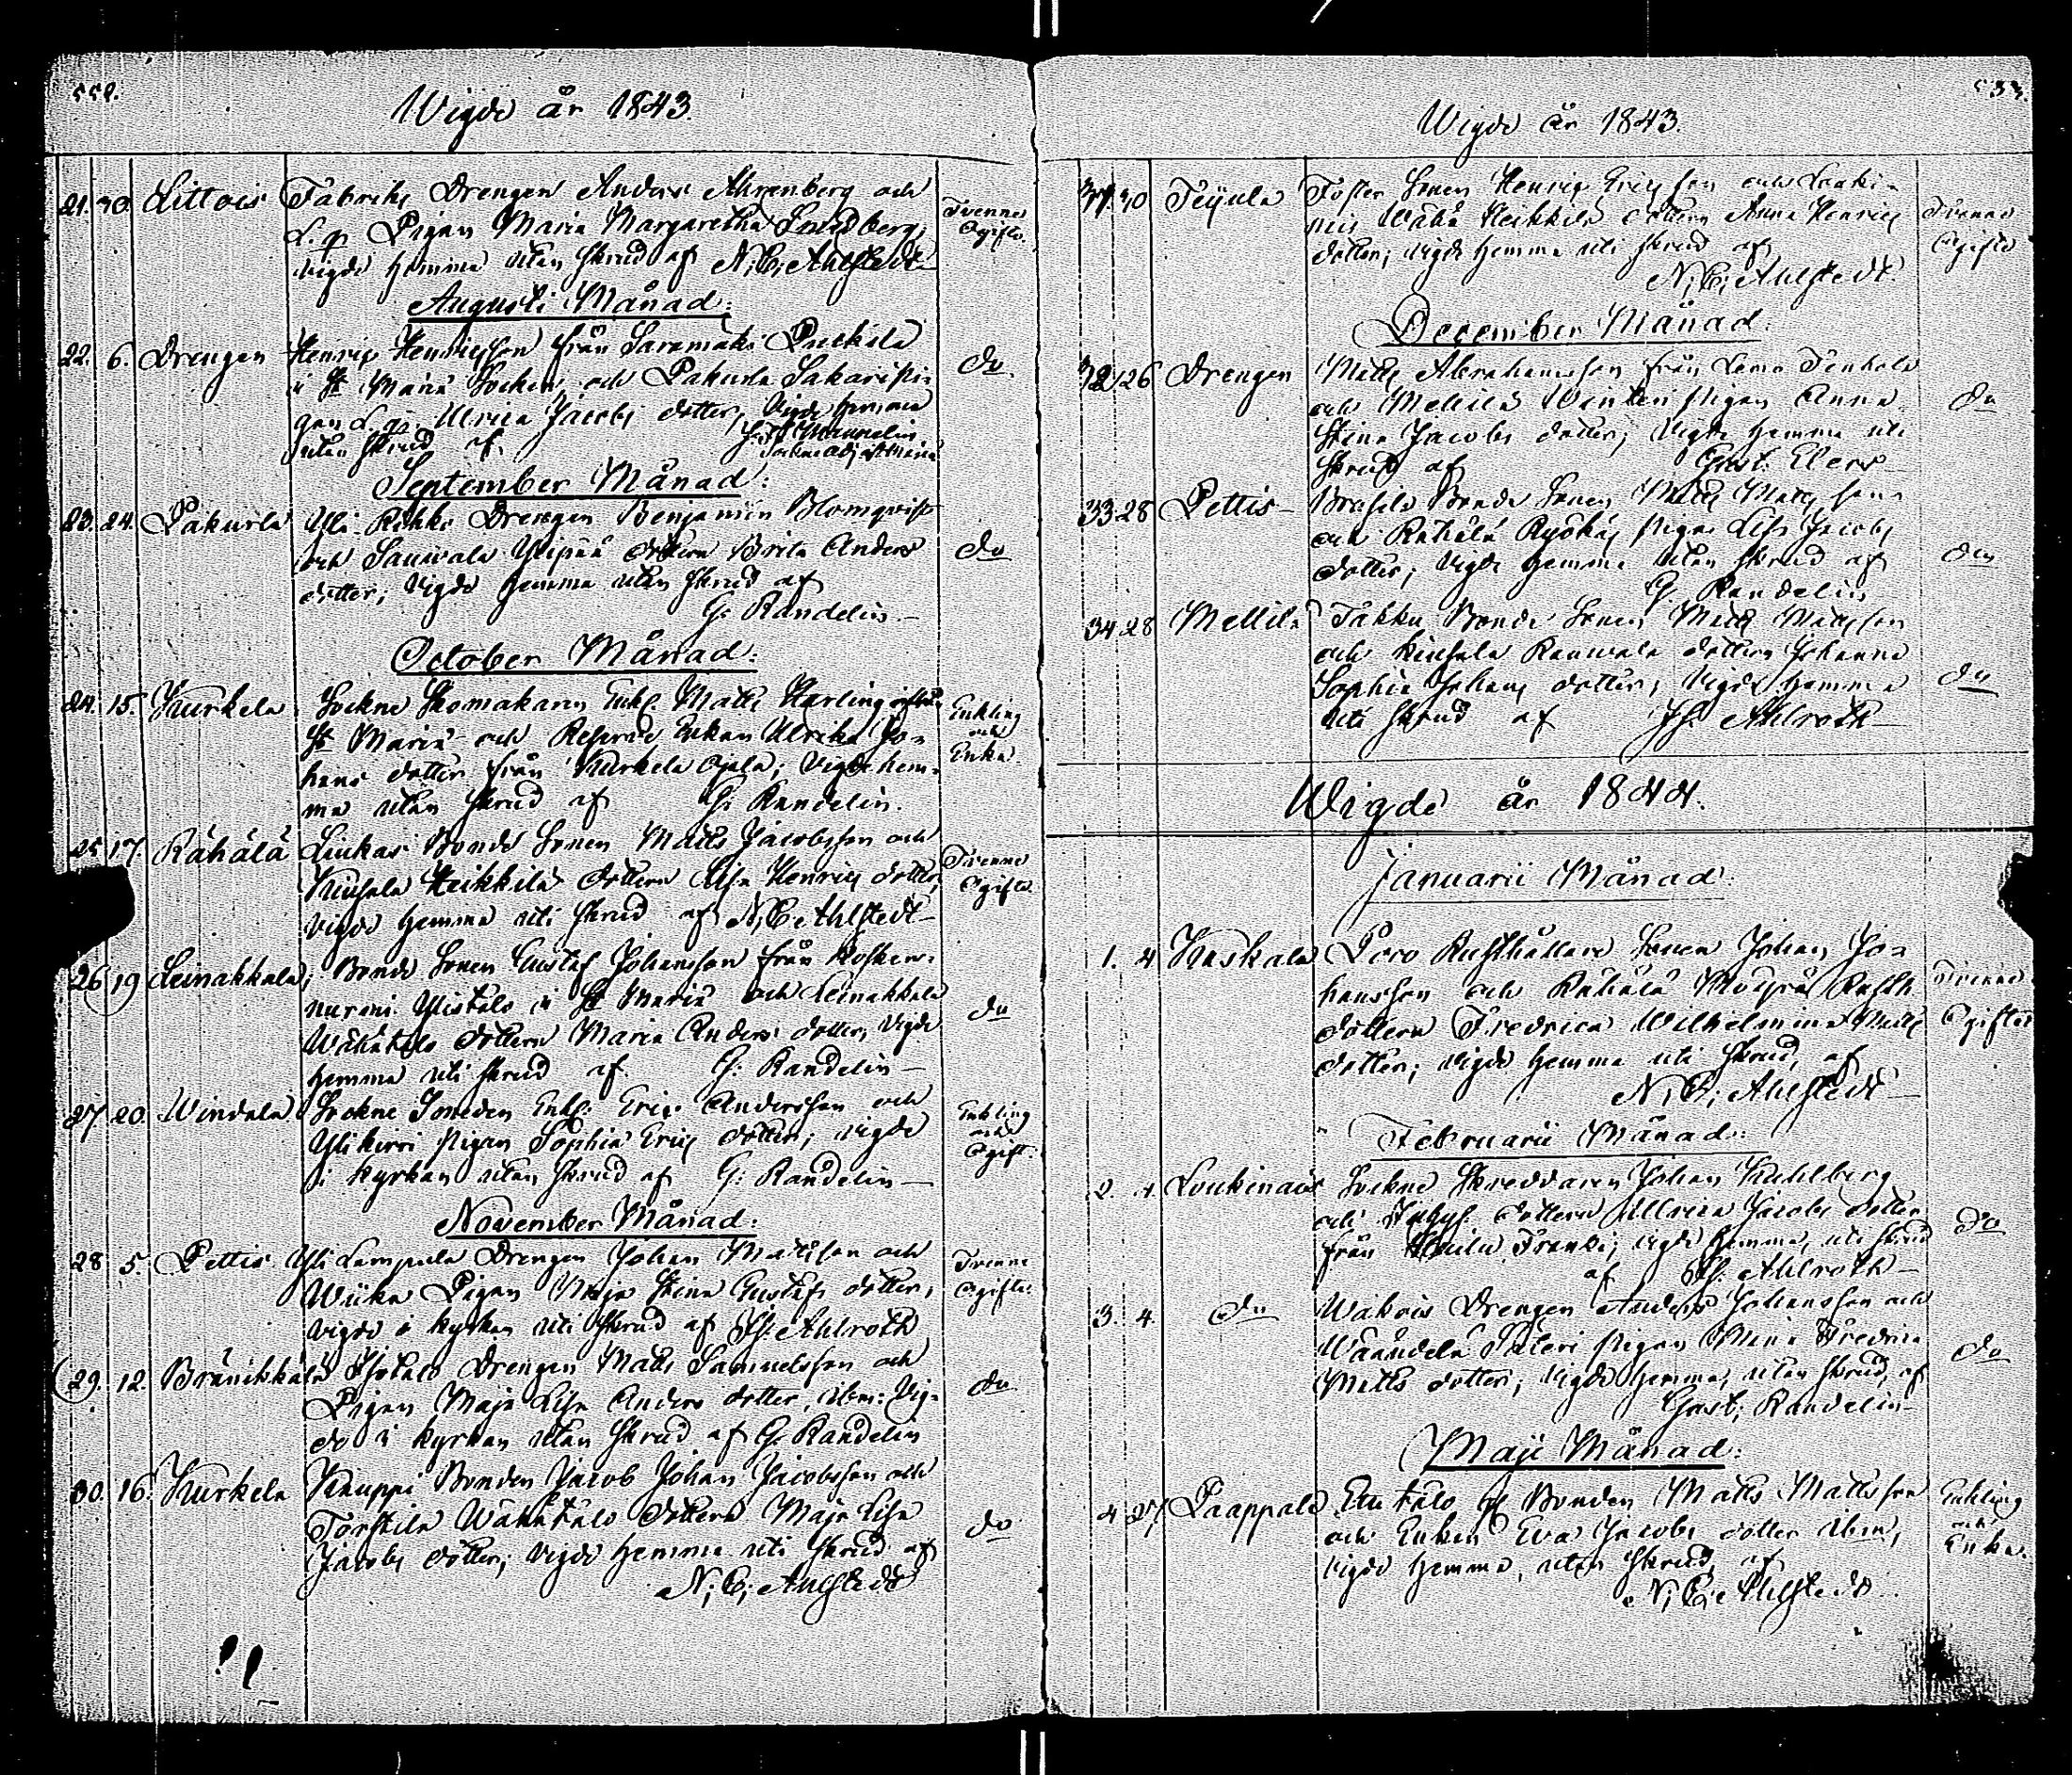 Wigde år 1843.
21. 30. Littois Fabriks Drengen Anders Ahrenberg och Tvenne
L. q. Pigan Maria Margaretha Lindberg; Ogifte.
vigde hemma utan skrud af N: C: Ahlstedt
Augusti Månad:
22. 6. Drengen Henric Henricsson från Saramäki Puckila do
i St Marie Socken, och Pakurla Sakari Pi-
gan L. q. Ulrica Jacobs dotter, Vigde hemma
utan skrud af
September Månad:
23. 24. Pakurla Yli Kokko Drengen Benjamin Blomqvist do
och Sauvala Ylipää dottern Brita Anders
dotter; vigde hemma utan skrud af
G: Randelin.
October Månad:
24. 15. Kurkela Sockne Skomakaren Enkl. Matts Harling
St Mariæ och Enkan Ulrika Jo-
hans dotter från Kurkela Ojala; vigde hem-
ma utan skrud af G: Randelin.
Enkling
och
Enka.
25. 17. Rähälä Luckas Bonde Sonen Matts Jacobsson och Tvenne
Kuusela Heikkilä dottern Lisa Henrics dotter, Ogifte.
vigde hemma uti skrud af N. C. Ahlstedt
26. 19 Leinakkala; Bonde Sonen Gustaf Johansson från Kosken-
nurmi Ylistalo i St Mariæ och Leinakkala do
Wähätalo dottern Maria Anders dotter, vigde
hemma uti skrud af G: Randelin
27. 20. Windala Sockne Smeden Enkl. Eric Andersson och Enkling
Ylikirri Pigan Sophia Erics dotter; vigde och
i kyrkan utan skrud af G: Randelin Ogift.
November Månad:
28 5. Pettis Yli Lempula Drengen Johan Mattsson och Tvenne
Wiika Pigan Maja Stina Gustafs dotter, Ogifte.
vigde i kyrkan uti skrud af Jh: Ahlroth
29. 12. Bränikkälä Isotalo Drengen Matts Samuelsson och
Pigan Maja Lisa Anders dotter, ibm: Vig- do
de i kyrkan utan skrud af G: Randelin
30. 16. Kurkela Kauppi Bonden Jacob Johan Jacobsson och
Torskila Wähätalo dottern Maja Lisa do
Jacobs dotter; vigde hemma uti skrud af
N: C: Ahlstedt
533.
Wigde år 1843.
31. 30 Foster Sonen Henric Ericsson och Louki-
nais Wähä Heikkilä dottern Anna Henrics Tvenne
dotter; vigde hemma uti skrud af Ogifte
N: C: Ahlstedt
December Månad:
32 26 Drengen Matts Abrahamsson från Lemo
och Mellilä Winteri Pigan Anna do
Stina Jacobs dotter; vigde hemma uti
skrud af Gust: Elers
33 28 Pettis Bonde Sonen Matts Mattsson
och Rähälä Pigan Lisa Jacobs
dotter; vigde hemma utan skrud af do
G: Randelin
34 28 Mellilä Takku Bonde Sonen Matts Mattsson
och Kuusela Rauvala dottern Johanna
Sophia Johans dotter; vigde hemma do
uti skrud af Jh: Ahlroth
Wigde år 1844.
Januarii Månad:
1. 4 Kaskala Poro Rusthållare Sonen Johan Jo-
hansson och Rähälä Rusth. Tvenne
dottern Fredrica Wilhelmina Matts Ogifte
dotter; vigde hemma uti skrud, af
N: C: Ahlstedt
Februarii Månad:
2. 4. Loukinais Sockne Skreddaren Johan Kuhlberg
och dottern Ulrica Jacobs dotter do
från Franki; vigde hemma, uti skrud
af Jh: Ahlroth
3. 4. do Wakois Drengen Anders Johansson och
Wäändelä Säteri Pigan Mina Fredrica do
Matts dotter; vigde hemma, utan skrud, af
Gust: Randelin
Maji Månad:
4 27. Paappala Bonden Matts Mattsson Enkling
och Enkan Eva Jacobs dotter ibm, och
vigde hemma, utan skrud, af Enka.
N: C: Ahlstedt